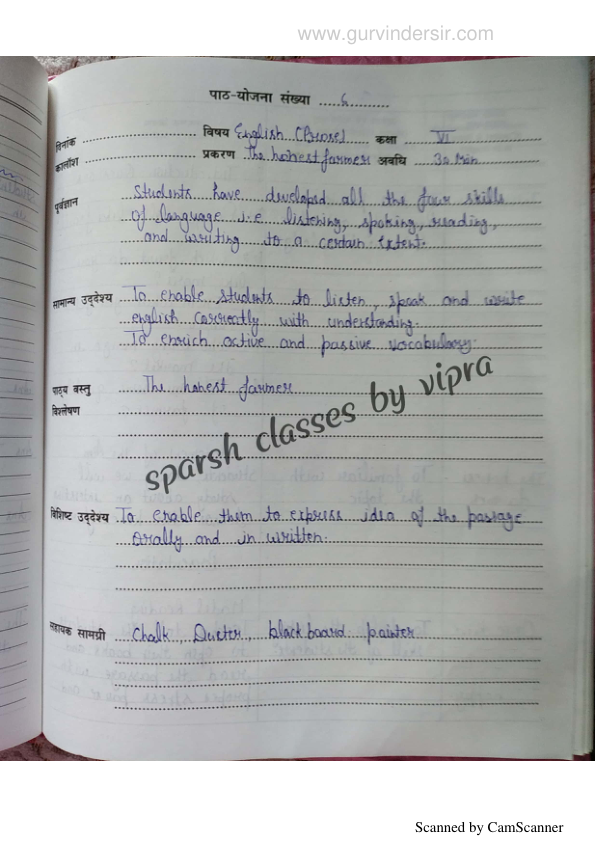 www.gurvindersir.com
पाठ-योजना संख्या .....6..........
दिनांक ............................ विषय English (Prose) कक्षा VI
कालांश ............................ प्रकरण The honest farmer अवधि 30 Min
पूर्वज्ञान Students have developed all the four skills
of language i.e listening, spoking, reading,
and writing to a certain extent.
सामान्य उद्देश्य To enable students to listen, speak and write
english corrrectly with understanding.
To enrich active and passive vocabulary.
पाठ्य वस्तु The honest farmer
विश्लेषण
sparsh classes by vipra
विशिष्ट उद्देश्य To enable them to express idea of the passage
orally and in written.
सहायक सामग्री Chalk Duster, black board painter
Scanned by CamScanner